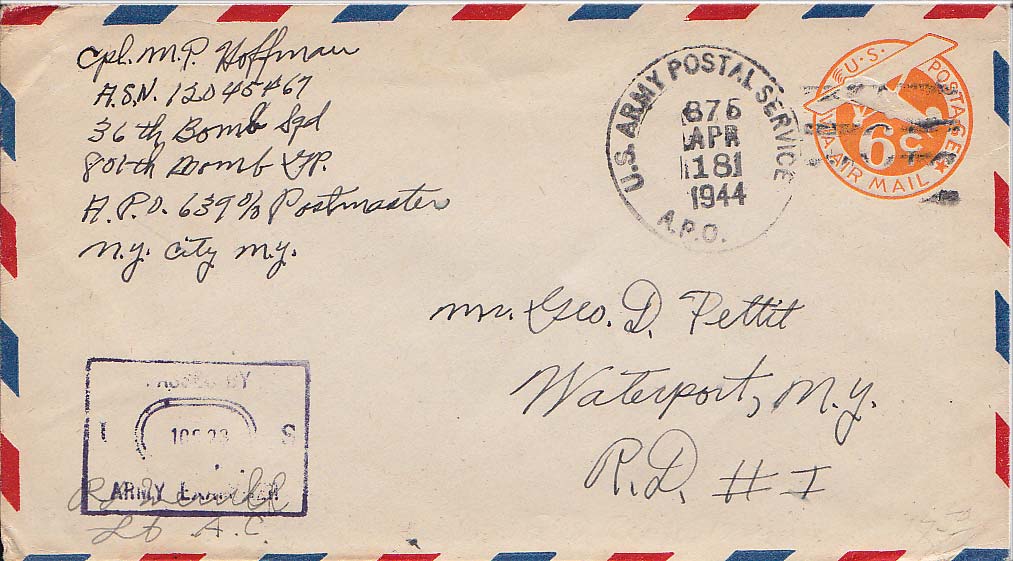 Cpl. M.P. Hoffman
A.S.N. 12045467
36th Bomb Sqd
801th Bomb GP.
A.P.O. 639 c/o Postmaster
N.Y. City N.Y.
U.S. ARMY POSTAL SERVICE
876
APR
18
1944
A.P.O.
U.S. POSTAGE
6c
VIA AIR MAIL
Mr. Geo. D. Pettit
Waterport, N.Y.
R.D. # I
PASSED BY
U S
ARMY EXAMINER
Lt A.C.